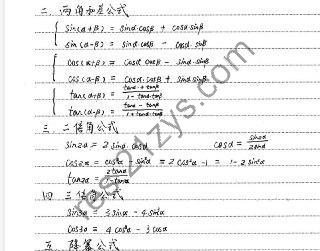 二. 两角和差公式
sin(α+β) = sinα·cosβ + cosα·sinβ
sin(α-β) = sinα·cosβ - cosα·sinβ
cos(α+β) = cosα·cosβ - sinα·sinβ
cos(α-β) = cosα·cosβ + sinα·sinβ
tan(α+β) = (tanα + tanβ)/(1 - tanα·tanβ)
tan(α-β) = (tanα - tanβ)/(1 + tanα·tanβ)
三. 二倍角公式
sin2α = 2 sinα·cosα cosα = sin2α/2sinα
cos2α = cos²α - sin²α = 2cos²α -1 = 1- 2 sin²α
tan2α = 2tanα/1-tan²α
四. 三倍角公式
sin3α = 3 sinα - 4 sin³α
cos3α = 4 cos³α - 3 cosα
五. 降幂公式